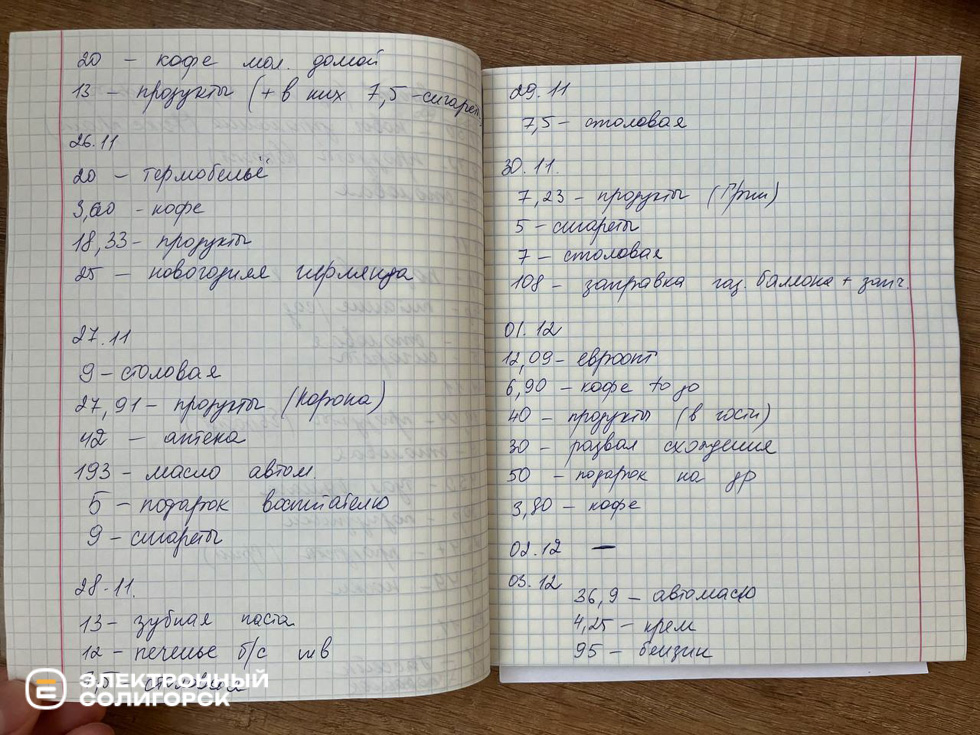 20 – кофе мол. домой
13 – продукты (+ в них 7,5 – сигареты
26.11
20 – термобельё
3,60 – кофе
18,33 – продукты
25 – новогодняя гирлянда
27.11
9 – столовая
27,91 – продукты (Корона)
42 – аптека
193 – масло автом.
5 – подарок воспитателю
9 – сигареты
28.11.
13 – зубная паста
12 – печенье б/с
столовая
29.11
7,5 – столовая
30.11.
7,23 – продукты (Грин)
5 – сигареты
7 – столовая
108 – заправка газ. баллона + запч.
01.12
12,09 – евроопт
6,90 – кофе to go
40 – продукты (в гости)
30 – развал схождение
50 – подарок на др
3,80 – кофе
02.12 —
03.12
36,9 – автомасло
4,25 – крем
95 – бензин
ЭЛЕКТРОННЫЙ
СОЛИГОРСК